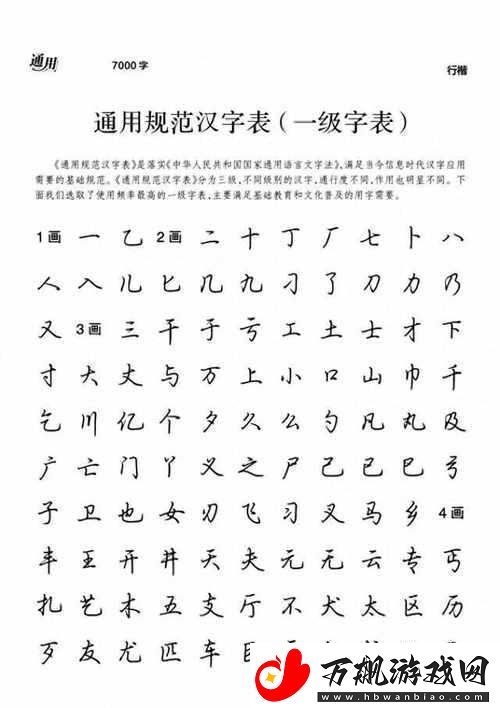 通用
7000 字
行楷
通用规范汉字表（一级字表）
《通用规范汉字表》是落实《中华人民共和国国家通用语言文字法》，满足当今信息时代汉字应用
需要的基础规范。《通用规范汉字表》分为三级，不同级别的汉字，通行度不同，作用也明显不同。下
面我们选取了使用频率最高的一级字表，主要满足基础教育和文化普及的用字需要。
1画 一 乙 2画 二 十 丁 厂 七 卜 八
人 入 儿 匕 几 九 刁 了 刀 力 乃
又 3画 三 干 于 亏 工 土 士 才 下
寸 大 丈 与 万 上 小 口 山 巾 千
乞 川 亿 个 夕 久 么 勺 凡 丸 及
广 亡 门 丫 义 之 尸 己 已 巳 弓
子 卫 也 女 刃 飞 习 叉 马 乡 4画
丰 王 开 井 天 夫 元 无 云 专 丐
扎 艺 木 五 支 厅 不 犬 太 区 历
歹 友 尤 匹 车
万飙游戏网
www.hbwanbiao.com